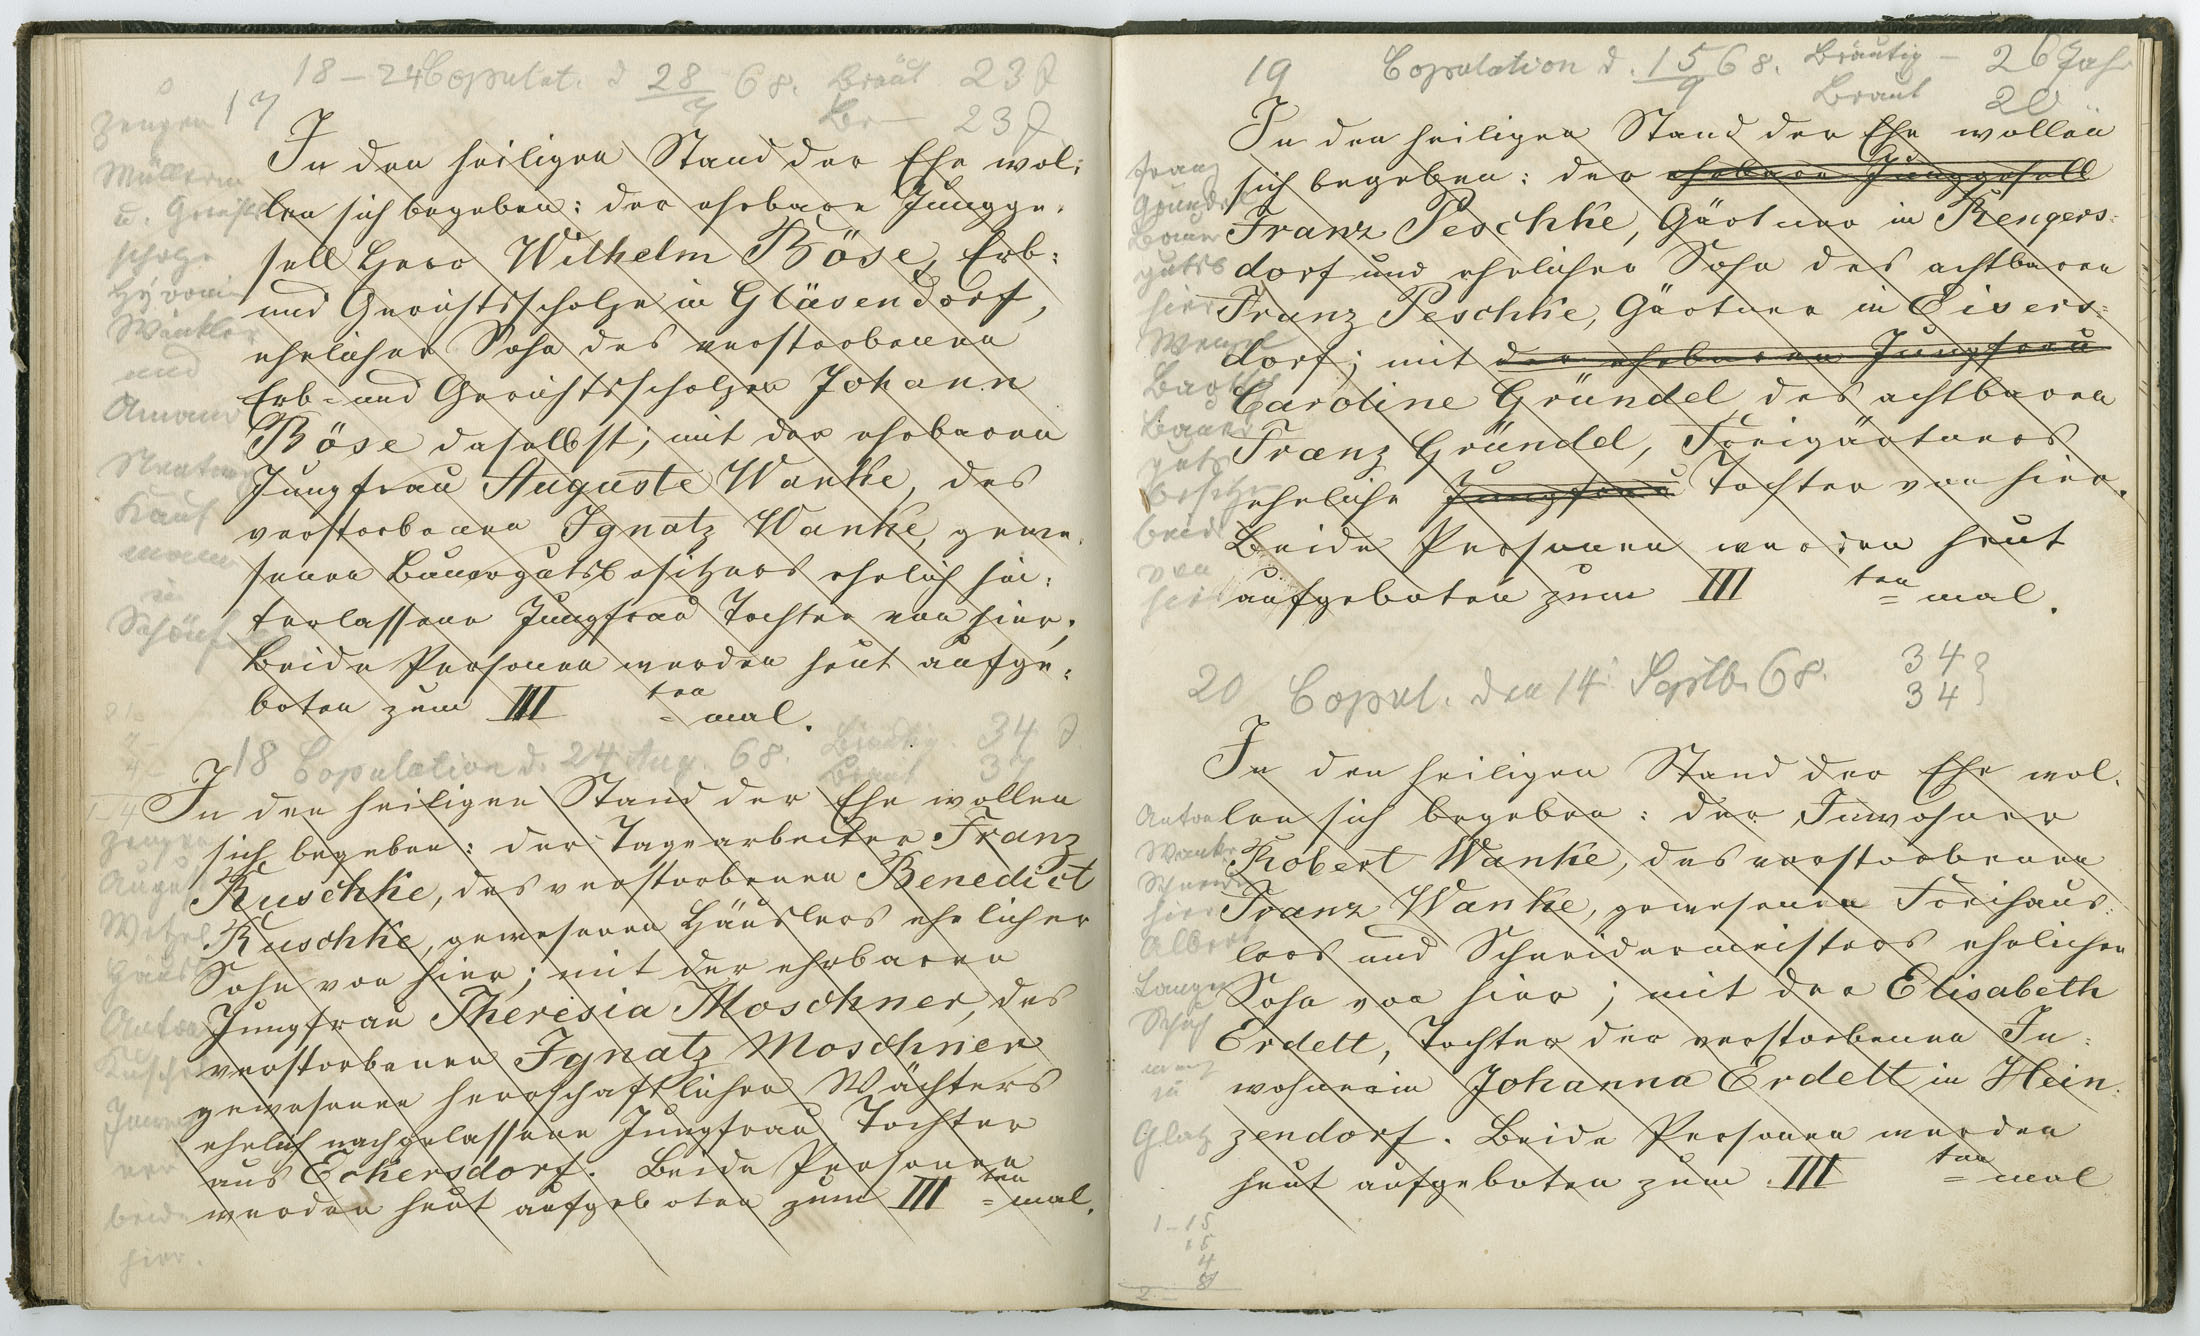 18 – 24 Copulat. d 28/7 68. Bräut. 23 J
17 Br – 23 J
Zeugen
Müllerm
u. Gerichts
scholze
Winkler
und
Amand
Kauf
mann
in
Schönf
In den heiligen Stand der Ehe wol:
len sich begeben: der ehrbare Jungge:
sell Herr Wilhelm Böse, Erb:
und Gerichtsscholze in Gläsendorf,
ehelicher Sohn des verstorbenen
Erb- und Gerichtsscholzen Johann
Böse daselbst; mit der ehrbaren
Jungfrau Auguste Wanke, des
verstorbenen Ignatz Wanke, gewe:
senen Bauergutsbesitzers ehelich hin:
terlassene Jungfrau Tochter von hier;
Beide Personen werden heut aufge:
boten zum III ten = mal.
18 Copulation d. 24 Aug. 68. Bräutig. 34 J
Braut
Zeugen
August
Witzel
Häus
Anton
Kusch
beide
hier.
In den heiligen Stand der Ehe wollen
sich begeben: der Tagearbeiter Franz
Kuschke, des verstorbenen Benedict
Kuschke, gewesenen Häuslers ehelicher
Sohn von hier; mit der ehrbaren
Jungfrau Theresia Moschner, des
verstorbenen Ignatz Moschner
gewesenen herrschaftlichen Wächters
ehelich nachgelassene Jungfrau Tochter
aus Eckersdorf. Beide Personen
werden heut aufgeboten zum III ten = mal.
19 Copulation d. 15/9 68. Bräutig – 26 Jahr
Braut 20 "
Franz
Gründel
Bauer
guts
hier
Bauer
guts
besitzer
beide
von
hier
In den heiligen Stand der Ehe wollen
sich begeben: der ehrbare Junggesell
Franz Peschke, Gärtner in Rengers:
dorf und ehelicher Sohn des achtbaren
Franz Peschke, Gärtner in Eisers:
dorf; mit der ehrbaren Jungfrau
Caroline Gründel des achtbaren
Franz Gründel, Freigärtners
eheliche Jungfrau Tochter von hier.
Beide Personen werden heut
aufgeboten zum III ten = mal.
20 Copul. den 14 Septb. 68. 34
34
Anton
Wanke
Schneider
hier
Albert
Langer
in
Glatz
In den heiligen Stand der Ehe wol:
len sich begeben: der Inwohner
Robert Wanke, des verstorbenen
Franz Wanke, gewesenen Freihaus:
lers und Schneidermeisters ehelicher
Sohn von hier; mit der Elisabeth
Erdelt, Tochter der verstorbenen In:
wohnerin Johanna Erdelt in Hein:
zendorf. Beide Personen werden
heut aufgeboten zum III ten = mal
1 – 15
15
4